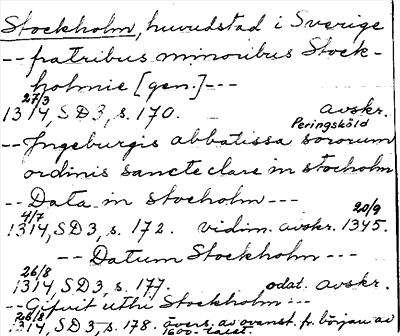 Stockholm, huvudstad i Sverige
-- fratribus minoribus Stock-
holmie [gen.] ---
27/3
1314, SD 3, s. 170. avskr.
Peringsköld
-- Ingeburgis abbatissa sororum
ordinis sancte clare in stocholm
-- Data in stocholm ---
4/7 20/9
1314, SD 3, s. 172. vidim. avskr. 1345.
-- Datum Stockholm ---
26/8
1314, SD 3, s. 177. odat. avskr.
-- Gifuit uthi Stockholm ---
26/8
1314, SD 3, s. 178. övers. av ovanst. fr. början av
1600-talet.